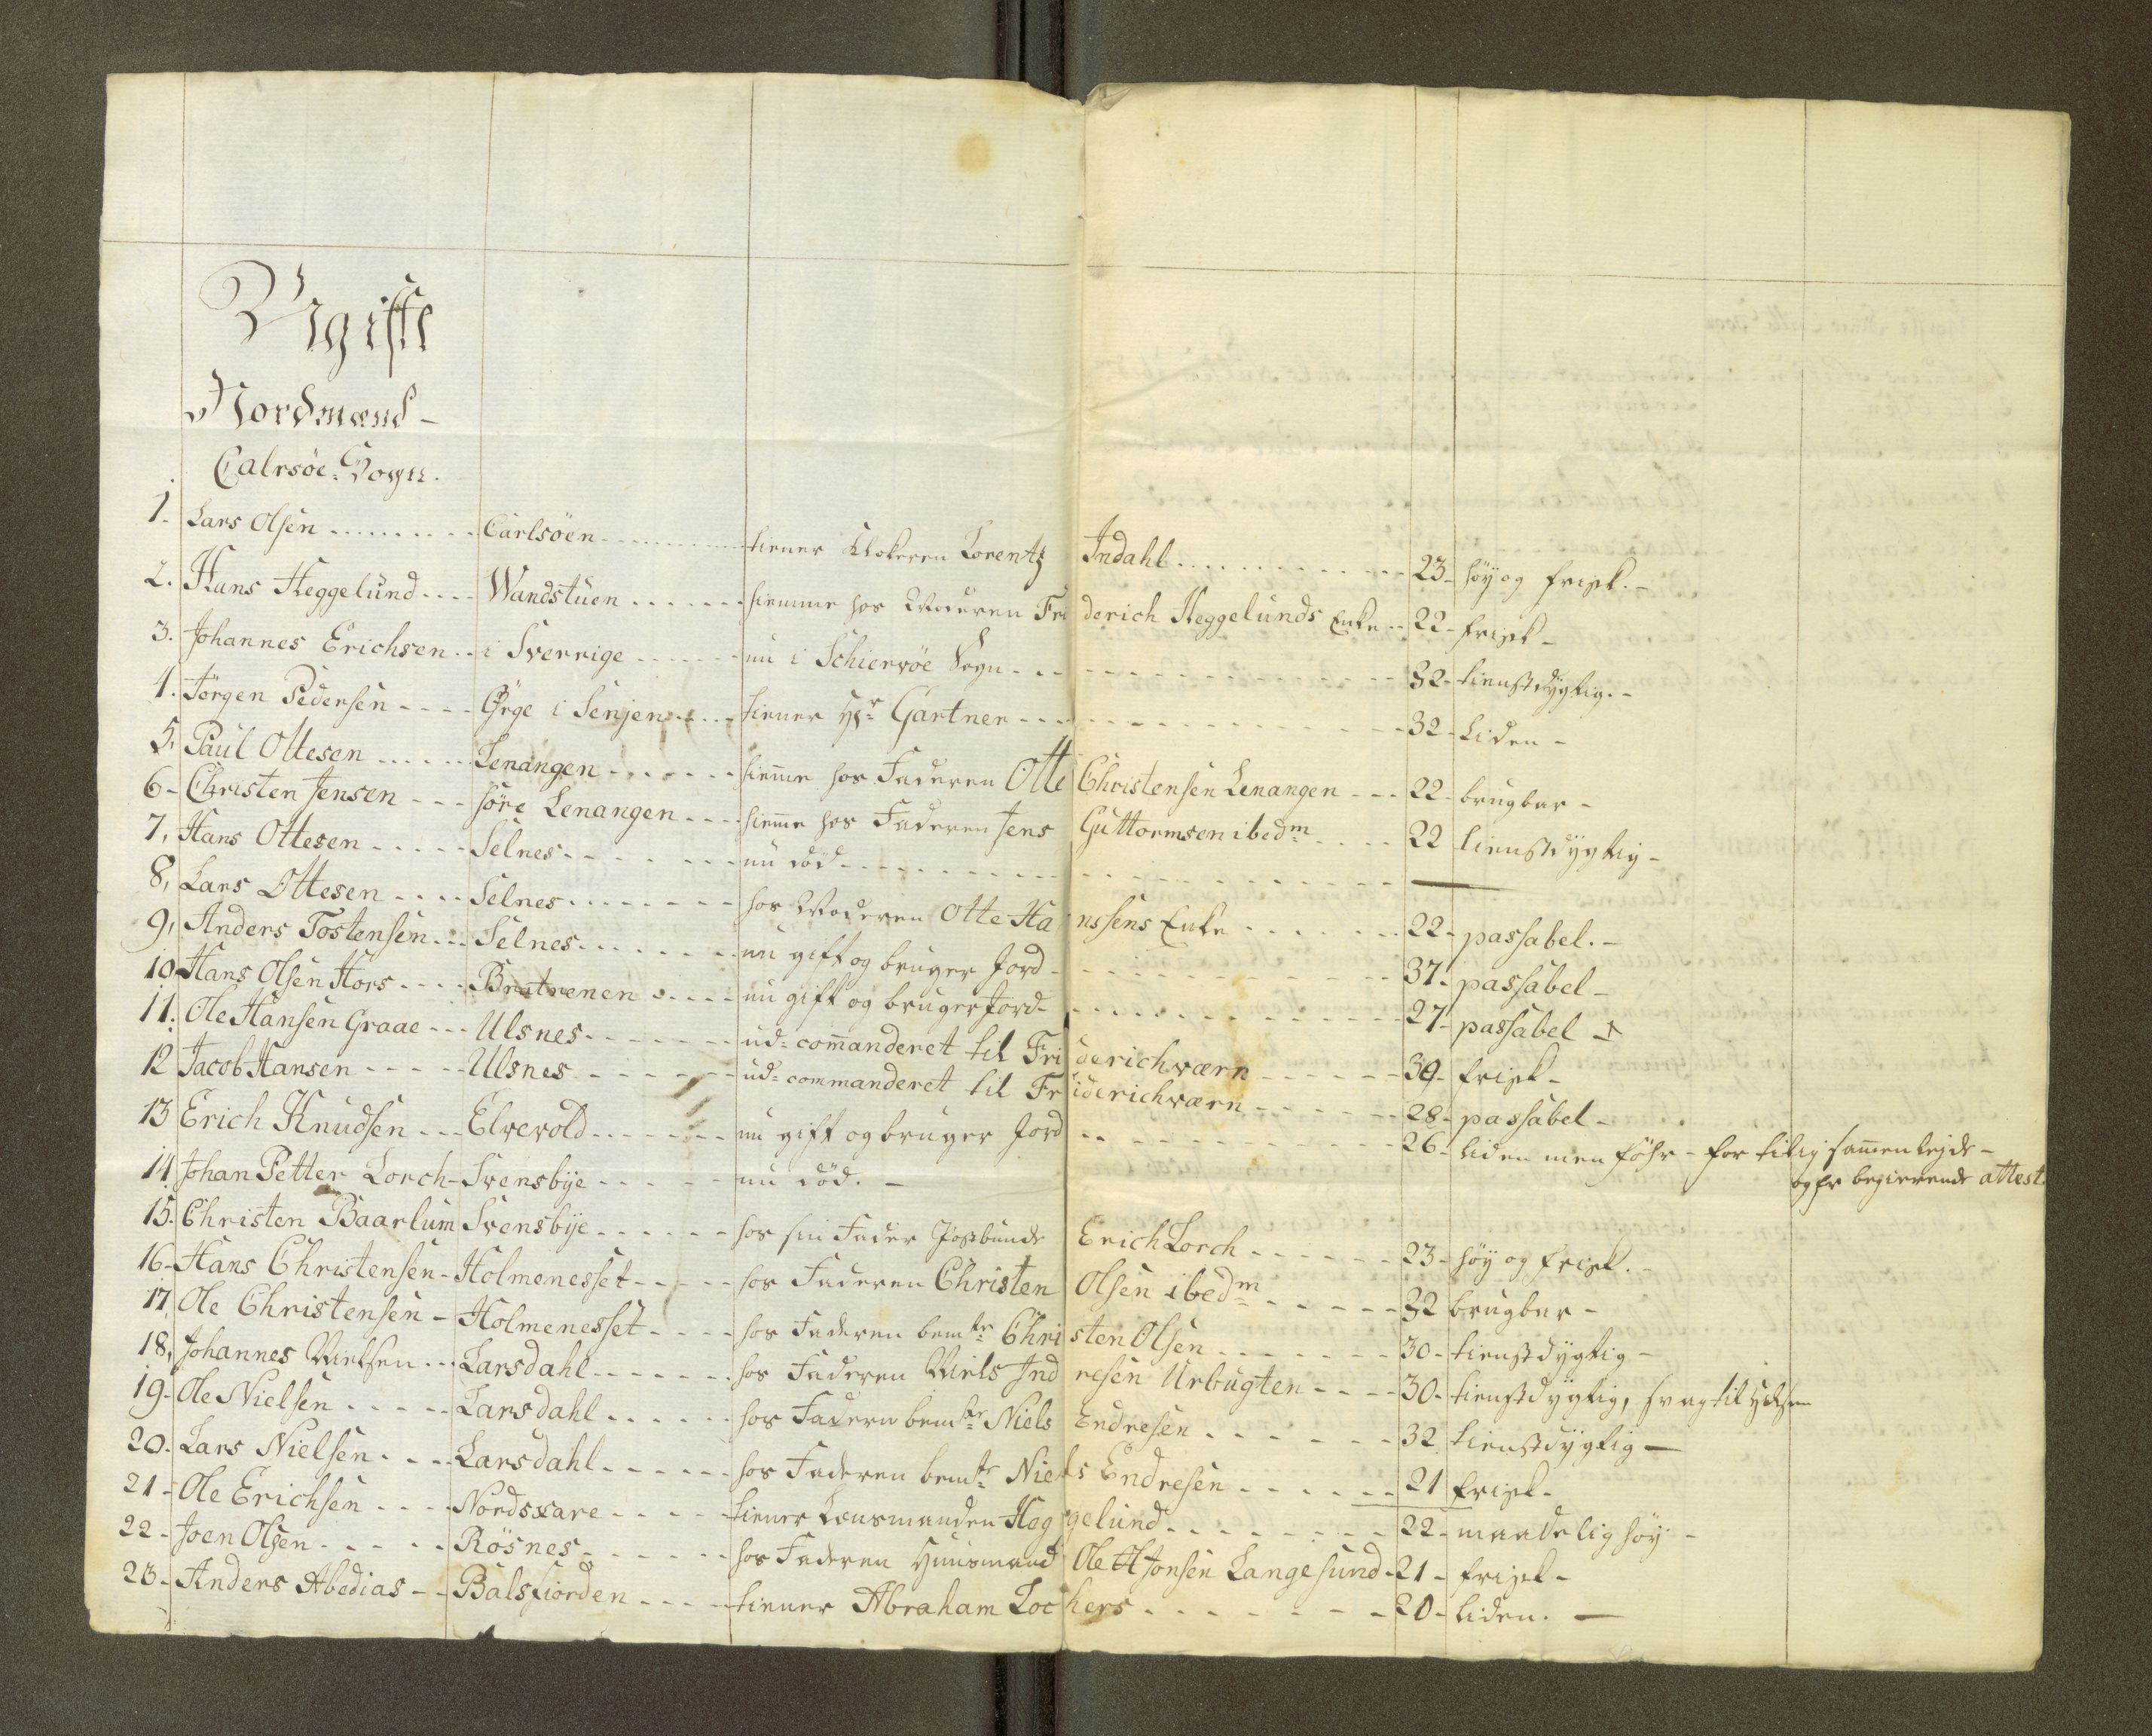 Ugifte
Nordmænd -
Calrsöe Sogn.
1. Lars Olsen Carlsöen tiener Klokeren Lorentz Indahl 23 höy og frisk. -
2. Hans Heggelund Wandstuen hiemme hos Moderen Friderich Heggelunds Enke 22 frisk -
3. Johannes Erichsen i Sverrige nu i Schiervöe Sogn 32 tienstdygtig. -
4. Jörgen Pedersen i Senjen tiener Hr Gartner 32 liden -
5. Paul Ottesen Lenangen hieme hos Faderen Otte Christensen Lenangen 22 brugbar -
6 Christen Jensen söre Lenangen hieme hos Faderen Jens Guttormsen ibedm 22 tienstdygtig -
7. Hans Ottesen Selnes nu död
8. Lars Ottesen Selnes hos Moderen Otte Hanssens Enke 22 passabel. -
9. Anders Tostensen Selnes nu gift og bruger Jord 37 passabel -
10 Hans Olsen Hors Bratrenen nu gift og bruger Jord 27 passabel
11. Ole Hansen Graae Ulsnes ud-comanderet til Friderichværn 30 frisk -
12 Jacob Hansen Ulsnes ud-commanderet til Friderichværn 28 passabel -
13 Erich Knudsen Elvevold nu gift og bruger Jord 26 liden men föhr - for tilig samenlejde -
og er begierende attest.
14 Johan Petter Lorch Svensbÿe nu död. -
15. Christen Baarlum Svensbÿe hos sin Fader Erich Lorch 23 höy og frisk. -
16 Hans Christensen Holmenesset hos Faderen Christen Olsen ibedm 32 brugbar -
17 Ole Christensen Holmenesset hos Faderen bemte Christen Olsen 30 tienstdygtig -
18. Johannes Nielsen Larsdahl hos Faderen Niels Indresen Urbugten 30 tienstdygtig, svag til
19 Ole Nielsen Larsdahl hos Faderen bemte Niels Endresen 32 tienstdygtig -
20. Lars Nielsen Larsdahl hos Faderen bemte Niels Endresen 21 frisk -
21 Ole Erichsen Nordsxare tiener Lensmanden Heggelund 22 maadelig höy -
22 Joen Olsen Rösnes hos Faderen Huusmand Ole Jonsen Langesund 21 frisk -
23 Anders Abedias Balsfiorden tiener Abraham Lochers 20 liden. -